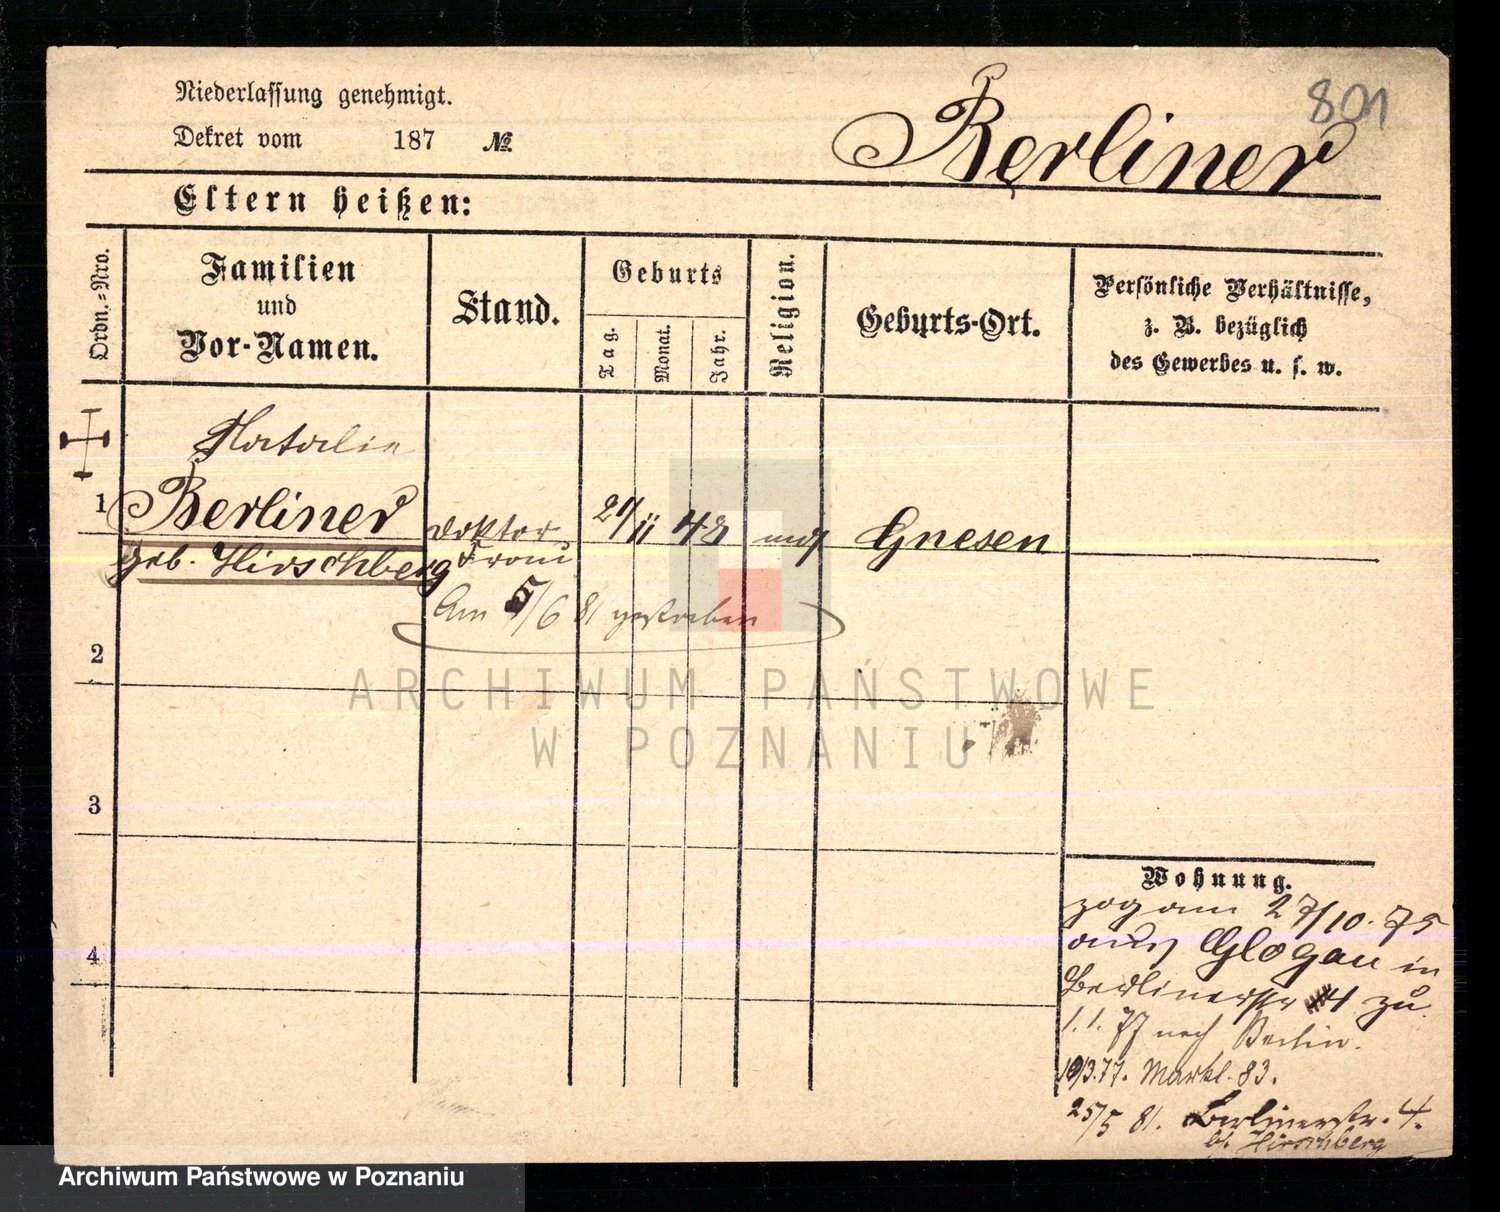 Niederlassung genehmigt.
Dekret vom 187 №
801
Berliner
Eltern heißen:
Ordn.-Nro.
Familien
und
Vor-Namen.
Stand.
Geburts
Tag.
Monat.
Jahr.
Religion.
Geburts-Ort.
Persönliche Verhältnisse,
z. B. bezüglich
des Gewerbes u. s. w.
Natalie
1 Berliner Doktor 48 Gnesen
geb. Hirschberg Frau
Am 5/6 81 gestorben
2
ARCHIWUM PAŃSTWOWE
W POZNANIU
3
Wohnung.
zog am 27/10. 75
aus Glogau in
4
Berlinerstr 4 zu
1. 1. 77 nach Berlin.
10/3.77. Markt. 83.
25/5 81. Berlinerstr. 4.
b. Hirschberg
Archiwum Państwowe w Poznaniu